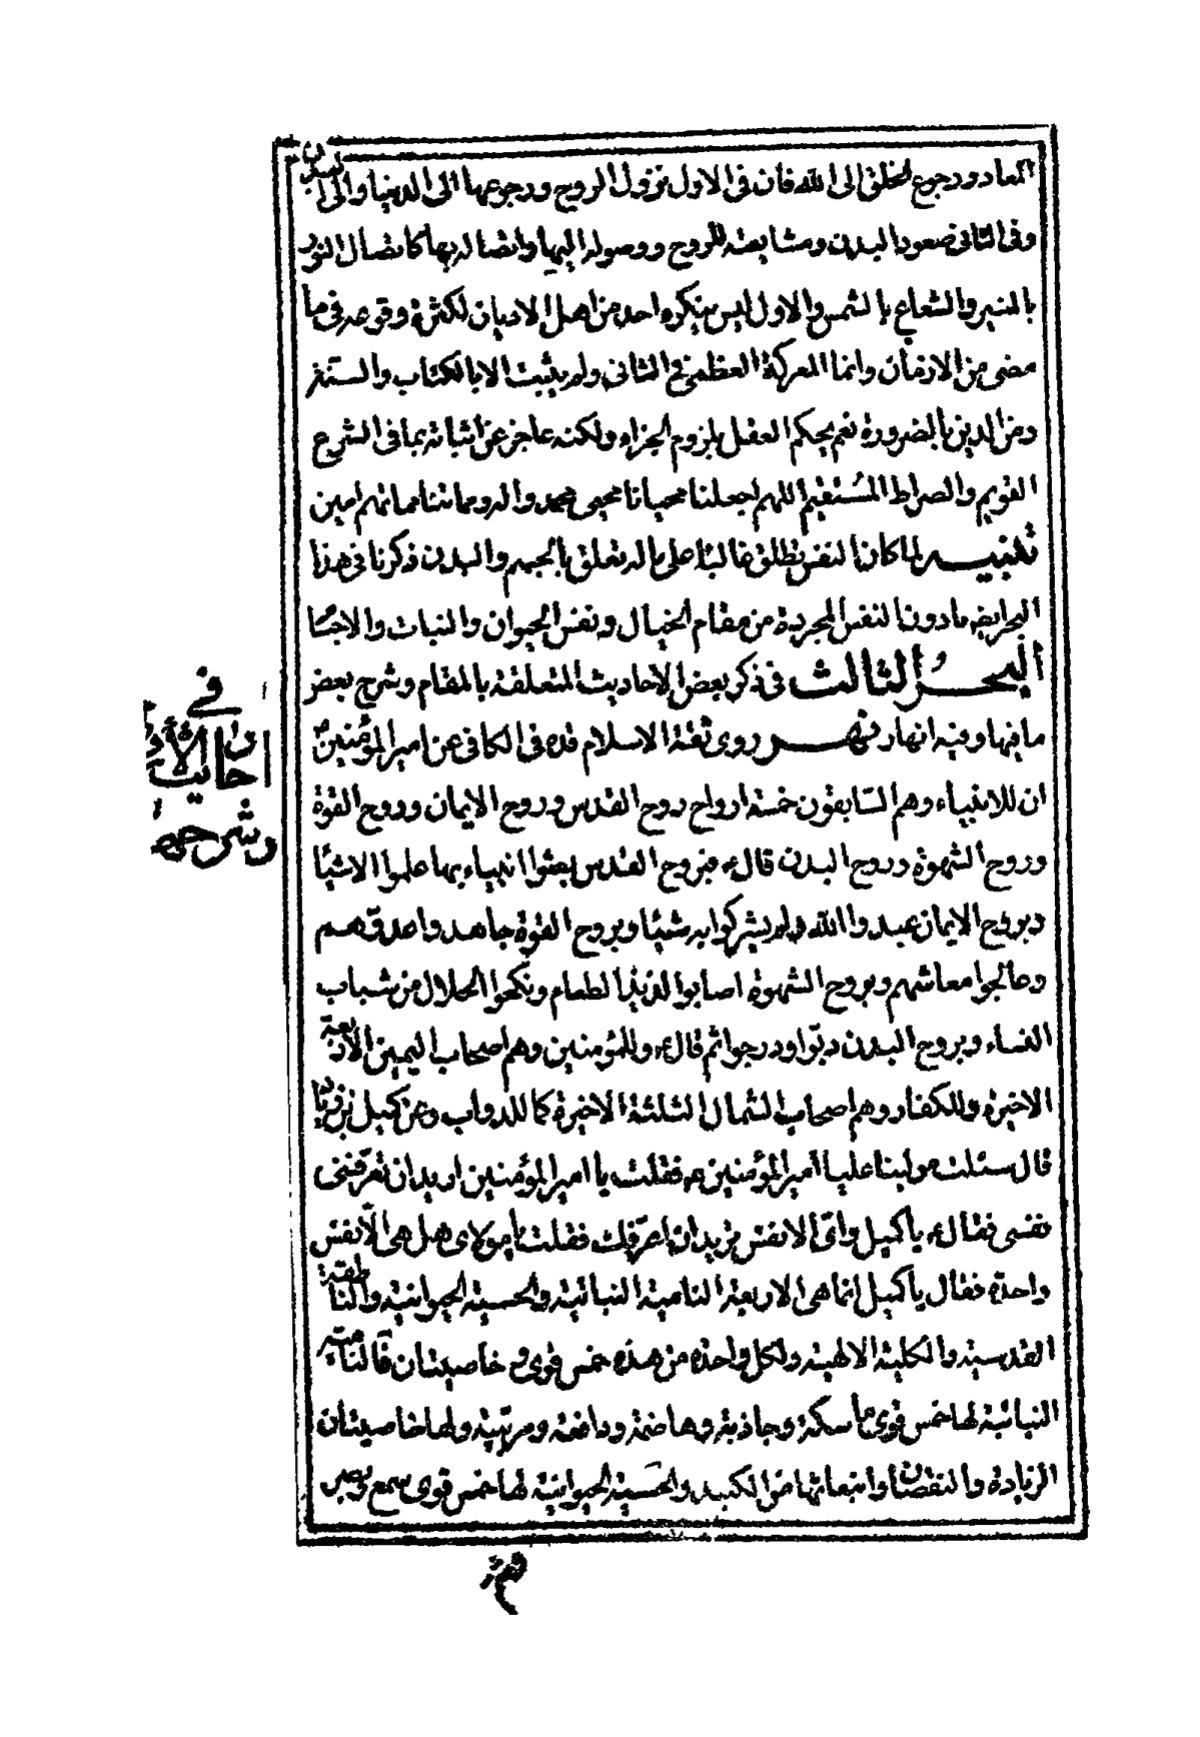 المعاد ورجوع الخلق الى الله فان فى الاول نزول الروح ورجوعها الى الدنيا والى البدن
وفى الثانى صعود البدن ومشايعته للروح ووصوله اليها واتصاله بها كاتصال النور
بالمنير والشعاع بالشمس والاول ليس ينكره احد من اهل الاديان لكثرة وقوعه فى ما
مضى من الازمان وانما المعركة العظمى فى الثانى ولم يثبت الا بالكتاب والسنة
ومن الدين بالضرورة نعم يحكم العقل بلزوم الجزاء ولكنه عاجز عن اثباته بما فى الشرع
القويم والصراط المستقيم اللهم اجعلنا محيانا محيى محمد واله ومماتنا مماتهم امين
تنبيه لما كان النفس تطلق غالبا على ماله تعلق بالجسم والبدن ذكرنا فى هذا
البحر ايضا مادون النفس المجردة من مقام الخيال ونفس الحيوان والنبات والاجسا
البحر الثالث فى ذكر بعض الاحاديث المتعلقة بالمقام وشرح بعض
ما فيها وفيه انهار نهر روى ثقة الاسلام قده فى الكافى عن امير المؤمنين
ان للانبياء وهم السابقون خمسة ارواح روح القدس وروح الايمان وروح القوة
وروح الشهوة وروح البدن قال ع فبروح القدس بعثوا انبياء بها علموا الاشيا
وبروح الايمان عبدوا الله ولم يشركوا به شيئا وبروح القوة جاهدوا عدوهم
وعالجوا معاشهم وبروح الشهوة اصابوا لذيذ الطعام ونكحوا الحلال من شباب
النساء وبروح البدن دبوا ودرجوا ثم قال ع وللمؤمنين وهم اصحاب اليمين الاربعة
الاخيرة وللكفار وهم اصحاب الشمال الثلثة الاخيرة كما للدواب وعن كميل بن زياد
قال سئلت مولينا عليا امير المؤمنين ع فقلت يا امير المؤمنين اريد ان تعرفنى
نفسى فقال ع يا كميل واى الانفس تريد ان اعرفك فقلت يا مولاى هل هى الا نفس
واحدة فقال يا كميل انما هى الاربعة النامية النباتية والحسية الحيوانية والناطقة
القدسية والكلية الالهية ولكل واحدة من هذه خمس قوى و خاصيتان فالنامية
النباتية لها خمس قوى ماسكة وجاذبة وهاضمة ودافعة ومربية ولها خاصيتان
الزيادة والنقصان وانبعاثها من الكبد والحسية الحيوانية لها خمس قوى سمع وبصر
فى
احاديث
وشرحها